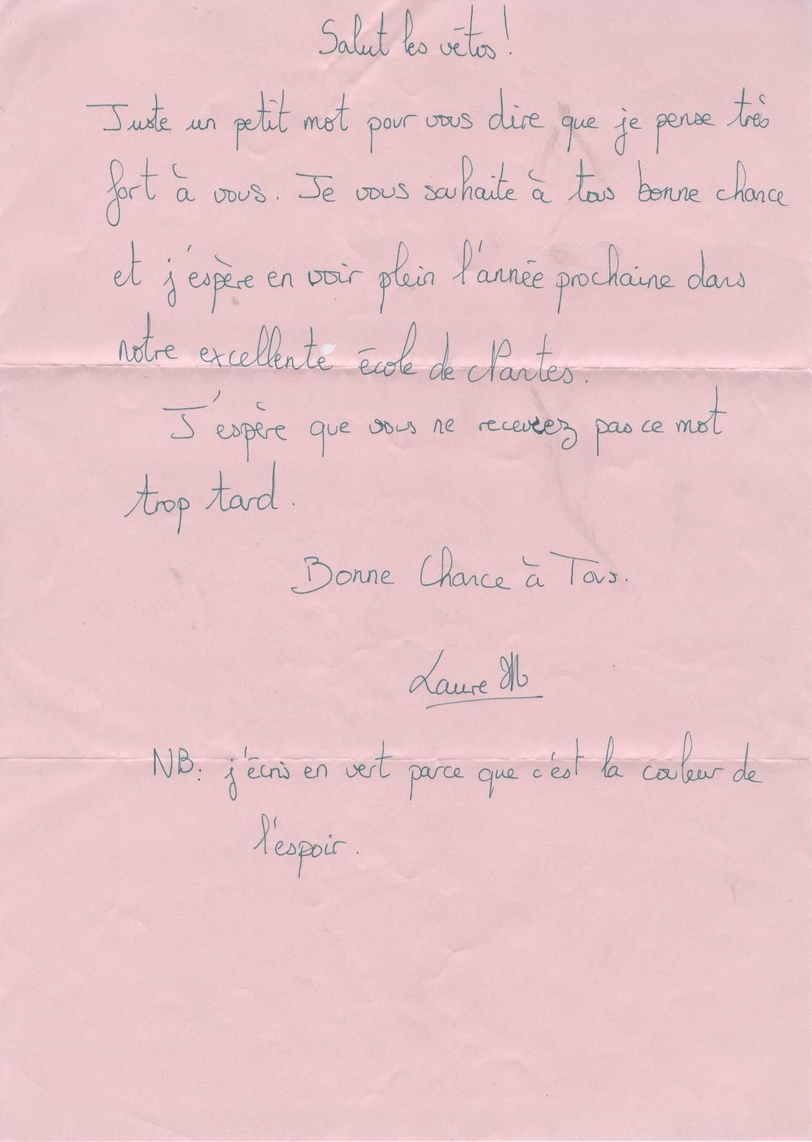 Salut les vétos !
Juste un petit mot pour vous dire que je pense très
fort à vous. Je vous souhaite à tous bonne chance
et j'espère en voir plein l'année prochaine dans
notre excellente école de Nantes.
J'espère que vous ne recevrez pas ce mot
trop tard.
Bonne Chance à Tous.
Laure M
NB: j'écris en vert parce que c'est la couleur de
l'espoir.